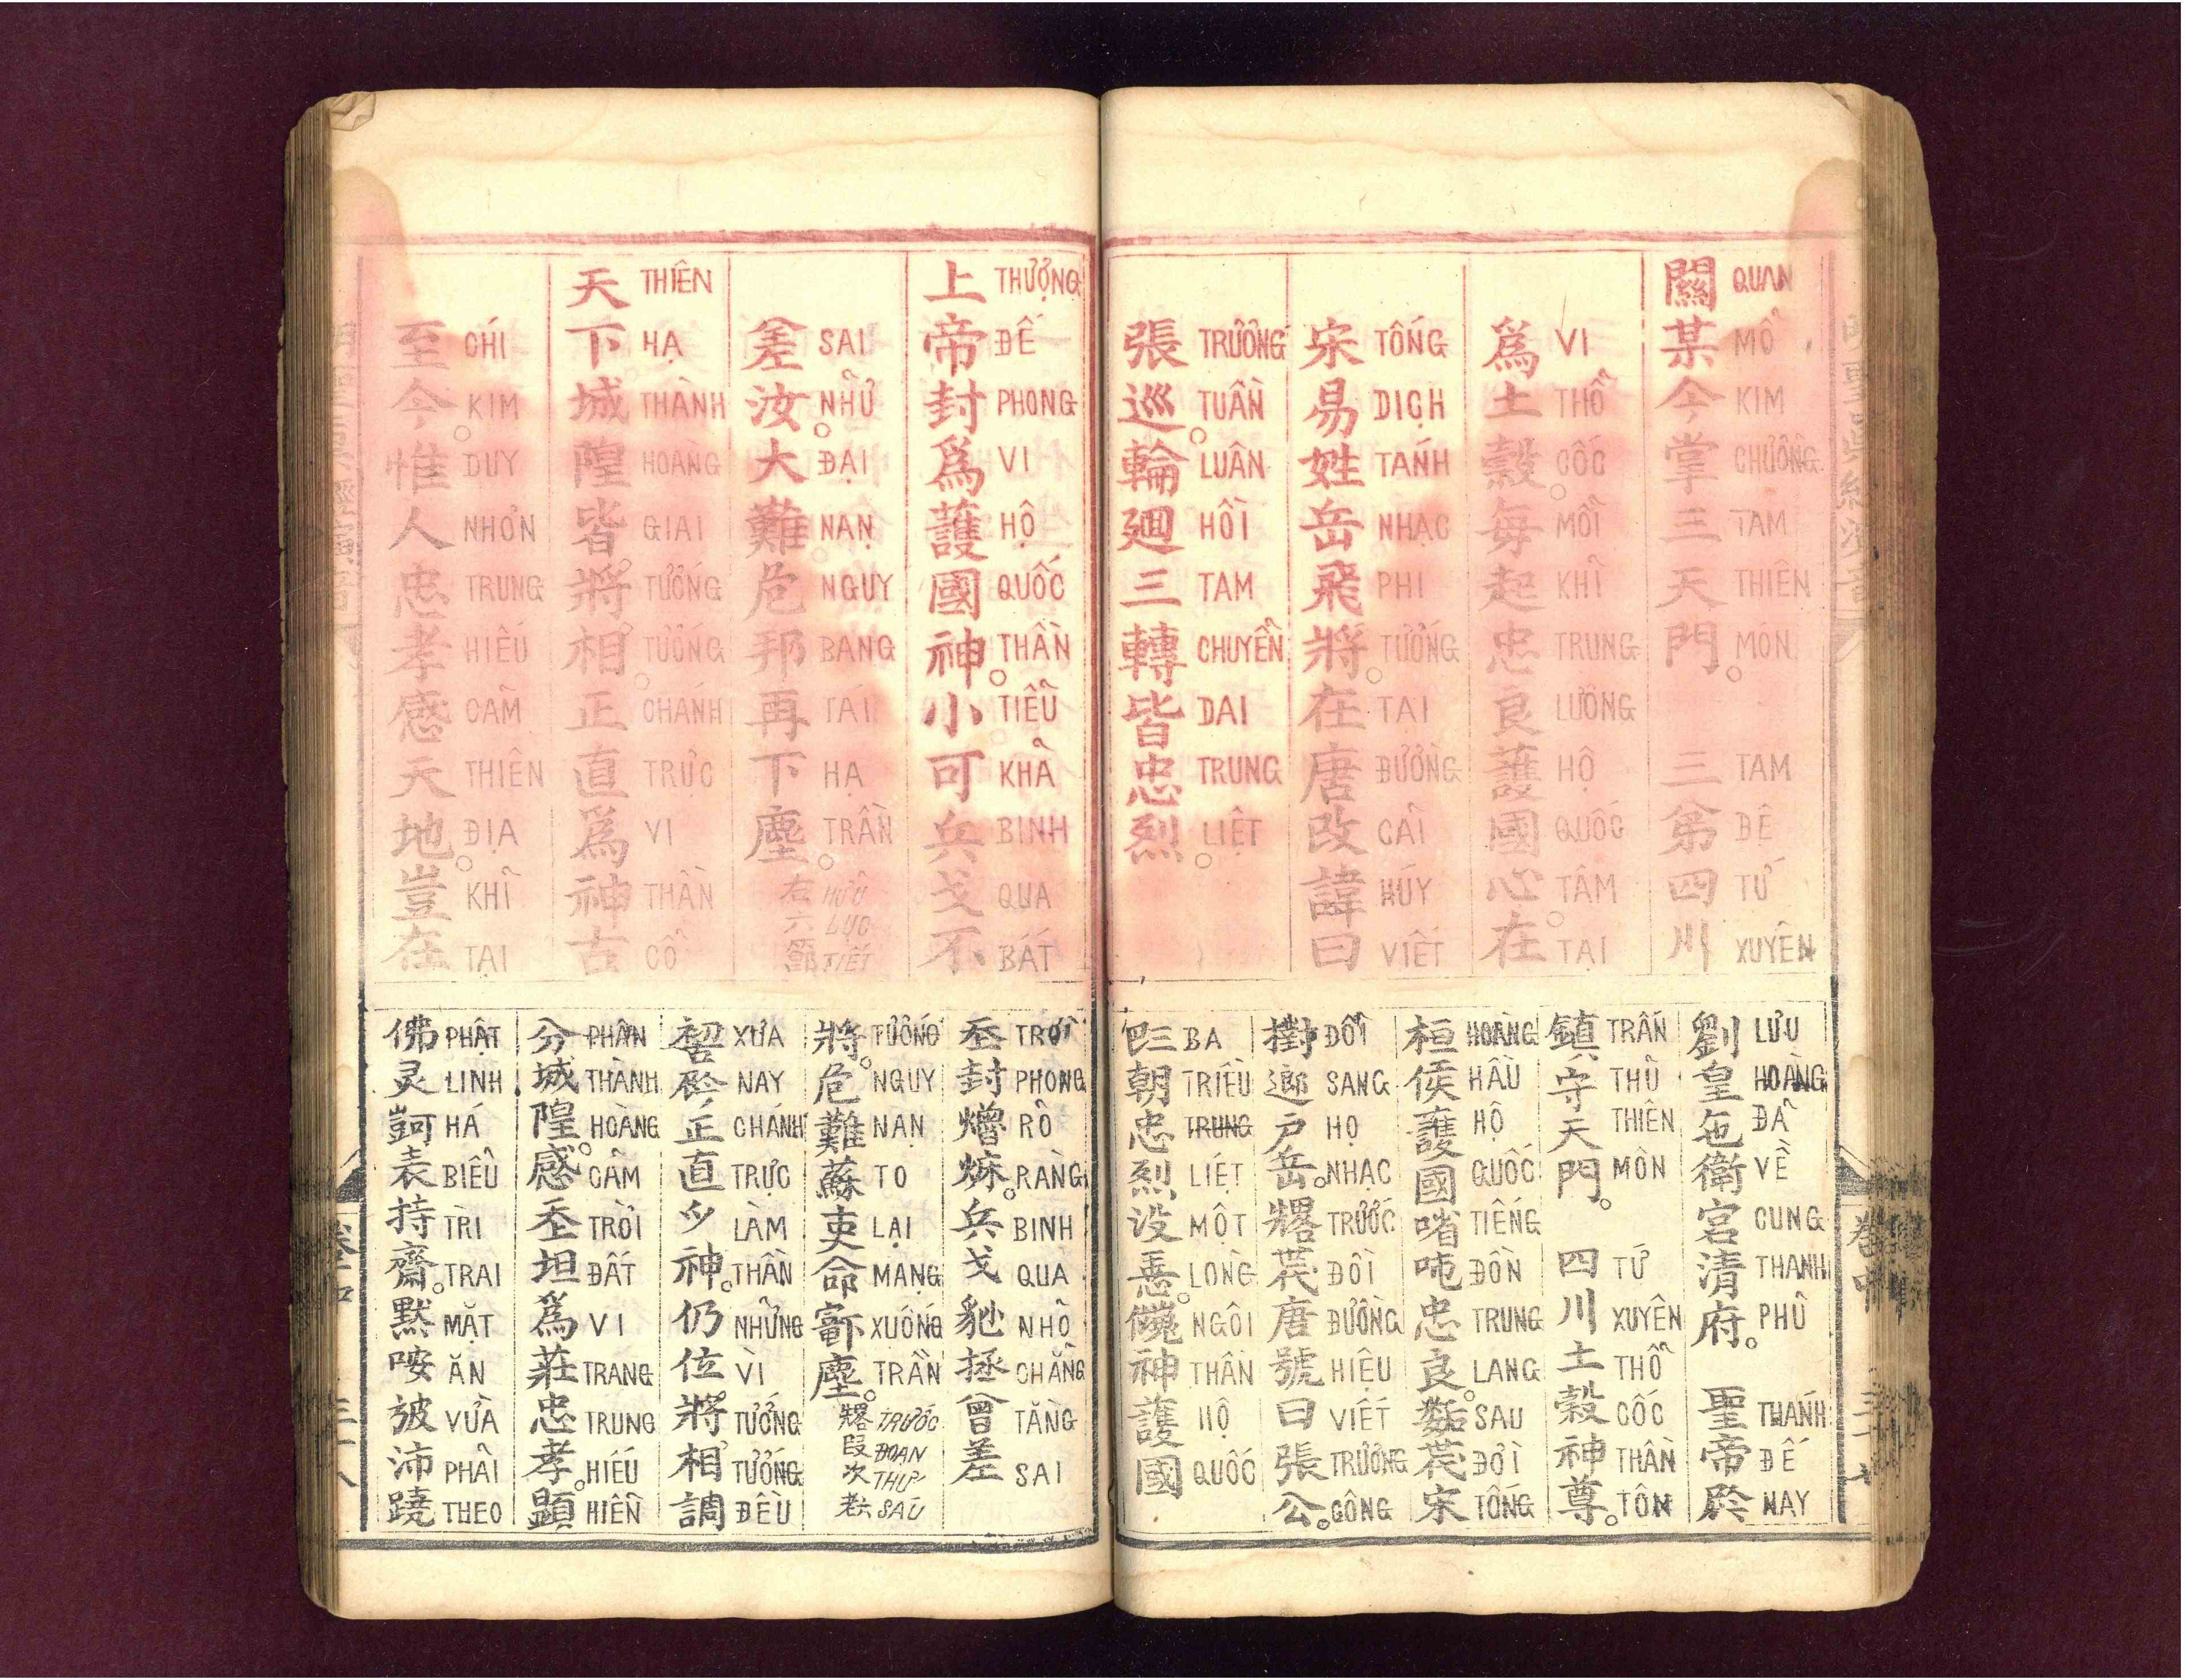 關某今掌三天門。三第四川
QUAN MỔ KIM CHƯỞNG TAM THIÊN MÔN TAM ĐỆ TỨ XUYÊN
為土穀。每起忠良護國心。在
VI THỔ CỐC MỖI KHỈ TRUNG LƯƠNG HỘ QUỐC TÂM TẠI
宋易姓岳飛將。在唐改諱曰
TỐNG DỊCH TÁNH NHẠC PHI TƯỚNG TẠI ĐƯỜNG CẢI HÚY VIẾT
張巡。輪廻三轉皆忠烈。
TRƯƠNG TUẦN LUÂN HỒI TAM CHUYỂN DAI TRUNG LIỆT
劉皇㐌衛宮清府。聖帝
LƯU HOÀNG ĐÃ VỀ CUNG THANH PHỦ THÁNH ĐẾ NAY
鎮守天門。四川土穀神尊。
TRẤN THỦ THIÊN MÔN TỨ XUYÊN THỔ CỐC THẦN TÔN
桓侯護國㗂吨忠良。宋
HOÀNG HẦU HỘ QUỐC TIẾNG ĐỒN TRUNG LANG SAU ĐỜI TỐNG
戶岳。唐號曰張公。
ĐỔI SANG HỌ NHẠC TRƯỚC ĐỜI ĐƯỜNG HIỆU VIẾT TRƯƠNG CÔNG
𠀧朝忠烈没神護國
BA TRIỀU TRUNG LIỆT MỘT LÒNG NGÔI THẦN HỘ QUỐC
上帝封為護國神。小可兵戈不
THƯỢNG ĐẾ PHONG VI HỘ QUỐC THẦN TIỂU KHẢ BINH QUA BẤT
差汝。大難。危邦再下塵。右六節
SAI NHỬ ĐẠI NẠN NGUY BANG TÁI HẠ TRẦN HỮU LỤC TIẾT
天下城隍皆將相。正直為神古
THIÊN HẠ THÀNH HOÀNG GIAI TƯỚNG TƯỚNG CHÁNH TRỰC VI THẦN CỔ
至今。惟人忠孝感天地。豈在
CHÍ KIM DUY NHƠN TRUNG HIẾU CẢM THIÊN ĐỊA KHỈ TẠI
封兵戈拯曾差
TRỜI PHONG RỎ RÀNG BINH QUA NHỎ CHẲNG TẰNG SAI
將。危難蘇吏命塵。
TƯỚNG NGUY NẠN TO LẠI MẠNG XUỐNG TRẦN TRƯỚC ĐOẠN THỨ SÁU
正直神。仍位將相調
XƯA NAY CHÁNH TRỰC LÀM THẦN NHỬNG VÌ TƯỚNG TƯỚNG ĐỀU
分城隍。感坦為莊忠孝。顕
PHẦN THÀNH HOÀNG CẢM TRỜI ĐẤT VI TRANG TRUNG HIẾU HIỂN
佛灵持齋。默唼沛蹺
PHẬT LINH HÁ BIỂU TRÌ TRAI MẶT ĂN VỪA PHẢI THEO